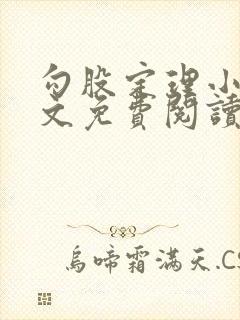 勾股定理小
文免費閱讀
烏啼霜滿天.CS